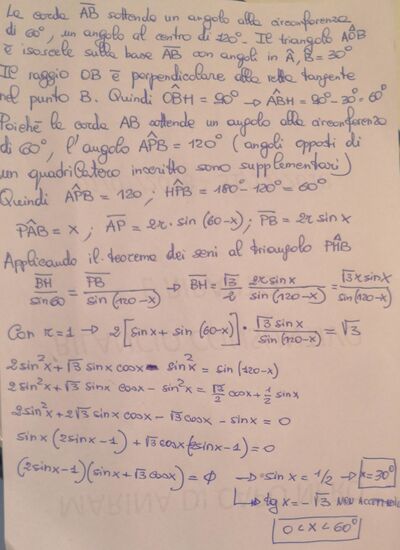 La corda AB sottende un angolo alla circonferenza
di 60°, un angolo al centro di 120°. Il triangolo AÔB
è isoscele sulla base AB con angoli in Â, B̂ = 30°
Il raggio OB è perpendicolare alla retta tangente
nel punto B. Quindi OB̂H = 90° → AB̂H = 90° - 30° = 60°
Poiché la corda AB sottende un angolo alla circonferenza
di 60°, l'angolo AP̂B = 120° (angoli opposti di
un quadrilatero inscritto sono supplementari)
Quindi AP̂B = 120; HP̂B = 180° - 120° = 60°
PÂB = x; AP = 2r · sin (60-x); PB = 2r sin x
Applicando il teorema dei seni al triangolo PĤB
BH/sin 60 = PB/sin (120-x) → BH = √3/2 2r sin x/sin (120-x) = √3 r sin x/sin (120-x)
Con r = 1 → 2[sin x + sin (60-x)] · √3 sin x/sin (120-x) = √3
2 sin²x + √3 sin x cos x - sin²x = sin (120-x)
2 sin²x + √3 sin x cos x - sin²x = √3/2 cos x + 1/2 sin x
2 sin²x + 2√3 sin x cos x - √3 cos x - sin x = 0
sin x (2 sin x - 1) + √3 cos x (2 sin x - 1) = 0
(2 sin x - 1)(sin x + √3 cos x) = 0 → sin x = 1/2 → x = 30°
↳ tg x = -√3 non
0 < x < 60°